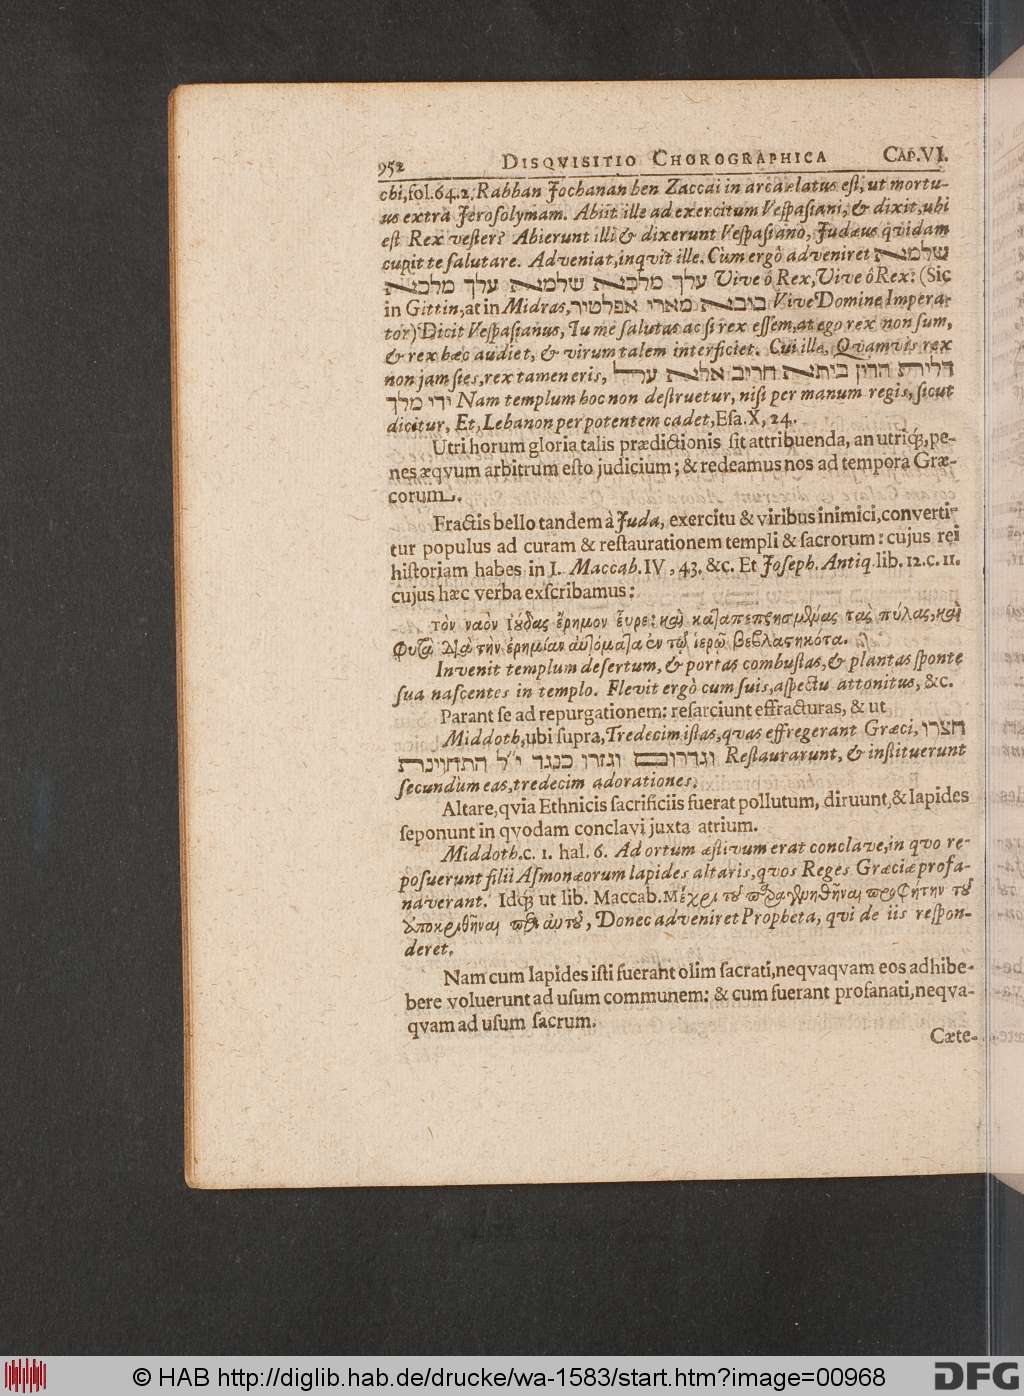 952 DISQVISITIO CHOROGRAPHICA CAP.VI.
chi, fol. 64.2, Rabban Jochanan ben Zaccai in arca elatus est, ut mortu-
us extrà Jerosolymam. Abiit ille ad exercitum Vespasiani, & dixit, ubi
est Rex vester? Abierunt illi & dixerunt Vespasiano, Judæus qvidam
cupit te salutare. Adveniat, inqvit ille. Cùm ergò adveniret שלמא
עלך מלכא שלמא עלך מלכא Vive ô Rex, Vive ô Rex: (Sic
in Gittin, at in Midras, ביבא מארי אפלטיר Vive Domine Impera-
tor) Dicit Vespasianus, Tu me salutas ac si rex essem, at ego rex non sum,
& rex hæc audiet, & virum talem interficiet. Cui ille, Qvamvis rex
non jam sies, rex tamen eris, דלית הדין ביתא חריב אלא על
ידי מלך Nam templum hoc non destruetur, nisi per manum regis, sicut
dicitur, Et, Lebanon per potentem cadet, Esa. X, 24.
Utri horum gloria talis prædictionis sit attribuenda, an utriq́;, pe-
nes æqvum arbitrum esto judicium; & redeamus nos ad tempora Græ-
corum.
Fractis bello tandem à Juda, exercitu & viribus inimici, converti-
tur populus ad curam & restaurationem templi & sacrorum: cujus rei
historiam habes in I. Maccab. IV, 43. &c. Et Joseph. Antiq. lib. 12. c. 11.
cujus hæc verba exscribamus:
τὸν ναὸν Ιούδας ἔρημον ἕυρε: καὶ καταπεπρησμένας τας πύλας, καὶ
φυτὰ διὰ τὴν ἐρημίαν αυτόματα ἐν τῷ ἱερῷ βεβλαστηκότα.
Invenit templum desertum, & portas combustas, & plantas sponte
sua nascentes in templo. Flevit ergò cum suis, aspectu attonitus, &c.
Parant se ad repurgationem: resarciunt effracturas, & ut
Middoth, ubi supra, Tredecim istas, qvas effregerant Græci, חצרו
וגדרום וגזרו כנגד י״ל התחוינת Restaurarunt, & instituerunt
secundùm eas, tredecim adorationes.
Altare, qvia Ethnicis sacrificiis fuerat pollutum, diruunt, & lapides
seponunt in qvodam conclavi juxta atrium.
Middoth. c. 1. hal. 6. Ad ortum æstivum erat conclave, in qvo re-
posuerunt filii Asmonæorum lapides altaris, qvos Reges Græciæ profa-
naverant. Idq́; ut lib. Maccab. Μέχρι τοῦ παραγενηθῆναι προφήτην τοῦ
ἀποκριθῆναι περὶ ἀυτοῦ, Donec adveniret Propheta, qvi de iis respon-
deret.
Nam cum lapides isti fuerant olim sacrati, neqvaqvam eos adhibe-
bere voluerunt ad usum communem: & cum fuerant profanati, neqva-
qvam ad usum sacrum.
Cæte-
© HAB http://diglib.hab.de/drucke/wa-1583/start.htm?image=00968
DFG